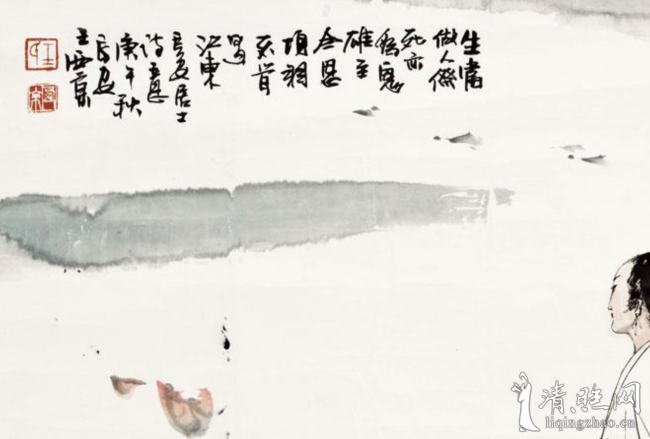 生當
做人傑
死亦
為鬼
雄至
今思
項羽
不肯
過
江東
易安居士
诗意
庚午秋
長安
王西京
清照网
liqingzhao.cn